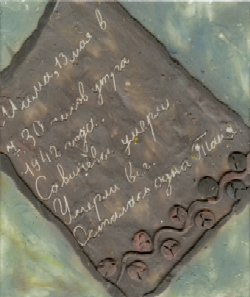 Мама, 13 мая в
7.30 часов утра
1942 года.
Савичевы умерли.
Умерли все.
Осталась одна Таня.